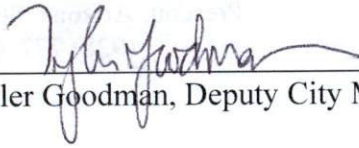 Tyler Goodman
ler Goodman, Deputy City M